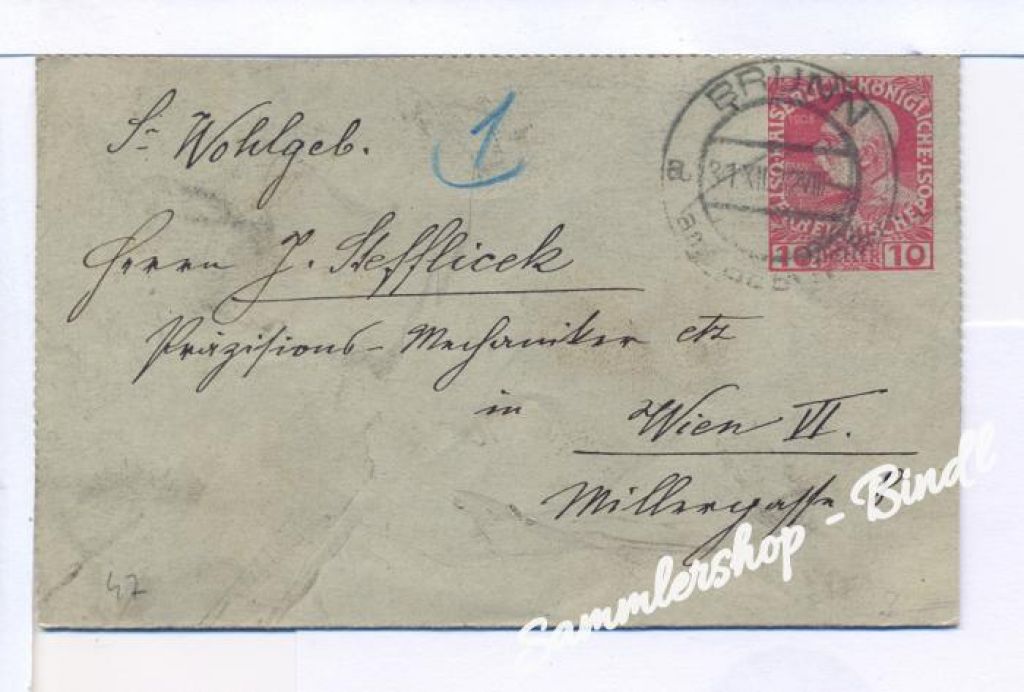 Sr Wohlgeb.
1
Herrn J. Stefflicek
Präzisions-Mechaniker etz
in Wien VI.
Millergasse
47
BRÜNN
31 XII
1908
10 HELLER 10
Sammlershop - Bindl